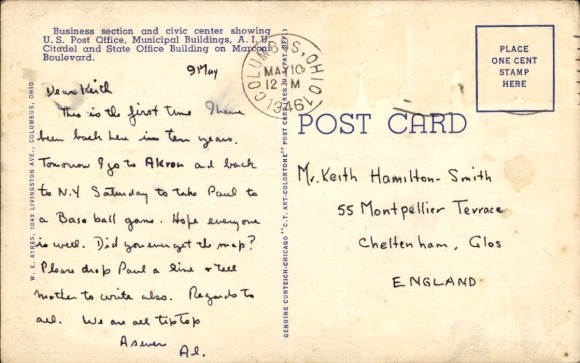 Business section and civic center showing
U. S. Post Office, Municipal Buildings, A. I. U.
Citadel and State Office Building on Marconi
Boulevard.
9 May
Dear Keith
This is the first time I have
been back here in ten years.
Tomorrow I go to Akron and back
to N.Y Saturday to take Paul to
a Base ball game. Hope everyone
is well. Did you ever get the map?
Please drop Paul a line & tell
mother to write also. Regards to
all. We are all tip top
As ever
Al.
W. E. AYRES, 1049 LIVINGSTON AVE., COLUMBUS, OHIO
GENUINE CURTEICH-CHICAGO "C.T. ART-COLORTONE" POST CARD (REG. U.S. PAT. OFF.)
COLUMBUS, OHIO
MAY 10
12 M
1946
PLACE
ONE CENT
STAMP
HERE
POST CARD
Mr. Keith Hamilton-Smith
55 Montpellier Terrace
Cheltenham, Glos
ENGLAND